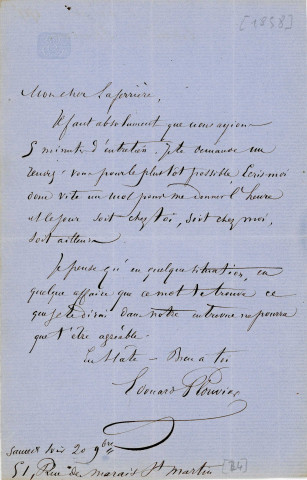 [1858]
Mon cher Laferrière,
Il faut absolument que nous ayions
5 minutes d'entretien. Je te demande un
rendez-vous pour le plus tôt possible. Écris moi
donc vite un mot pour me donner l'heure
et le jour soit chez toi, soit chez moi,
soit ailleurs.
Je pense qu'en quelque situation, en
quelque affaire que ce mot te trouve ce
que je te dirai dans notre entrevue ne pourra
que t'être agréable.
En hâte – Bien à toi
Edouard Plouvier
Samedi soir 20 9bre
51, Rue des marais St martin
[84]